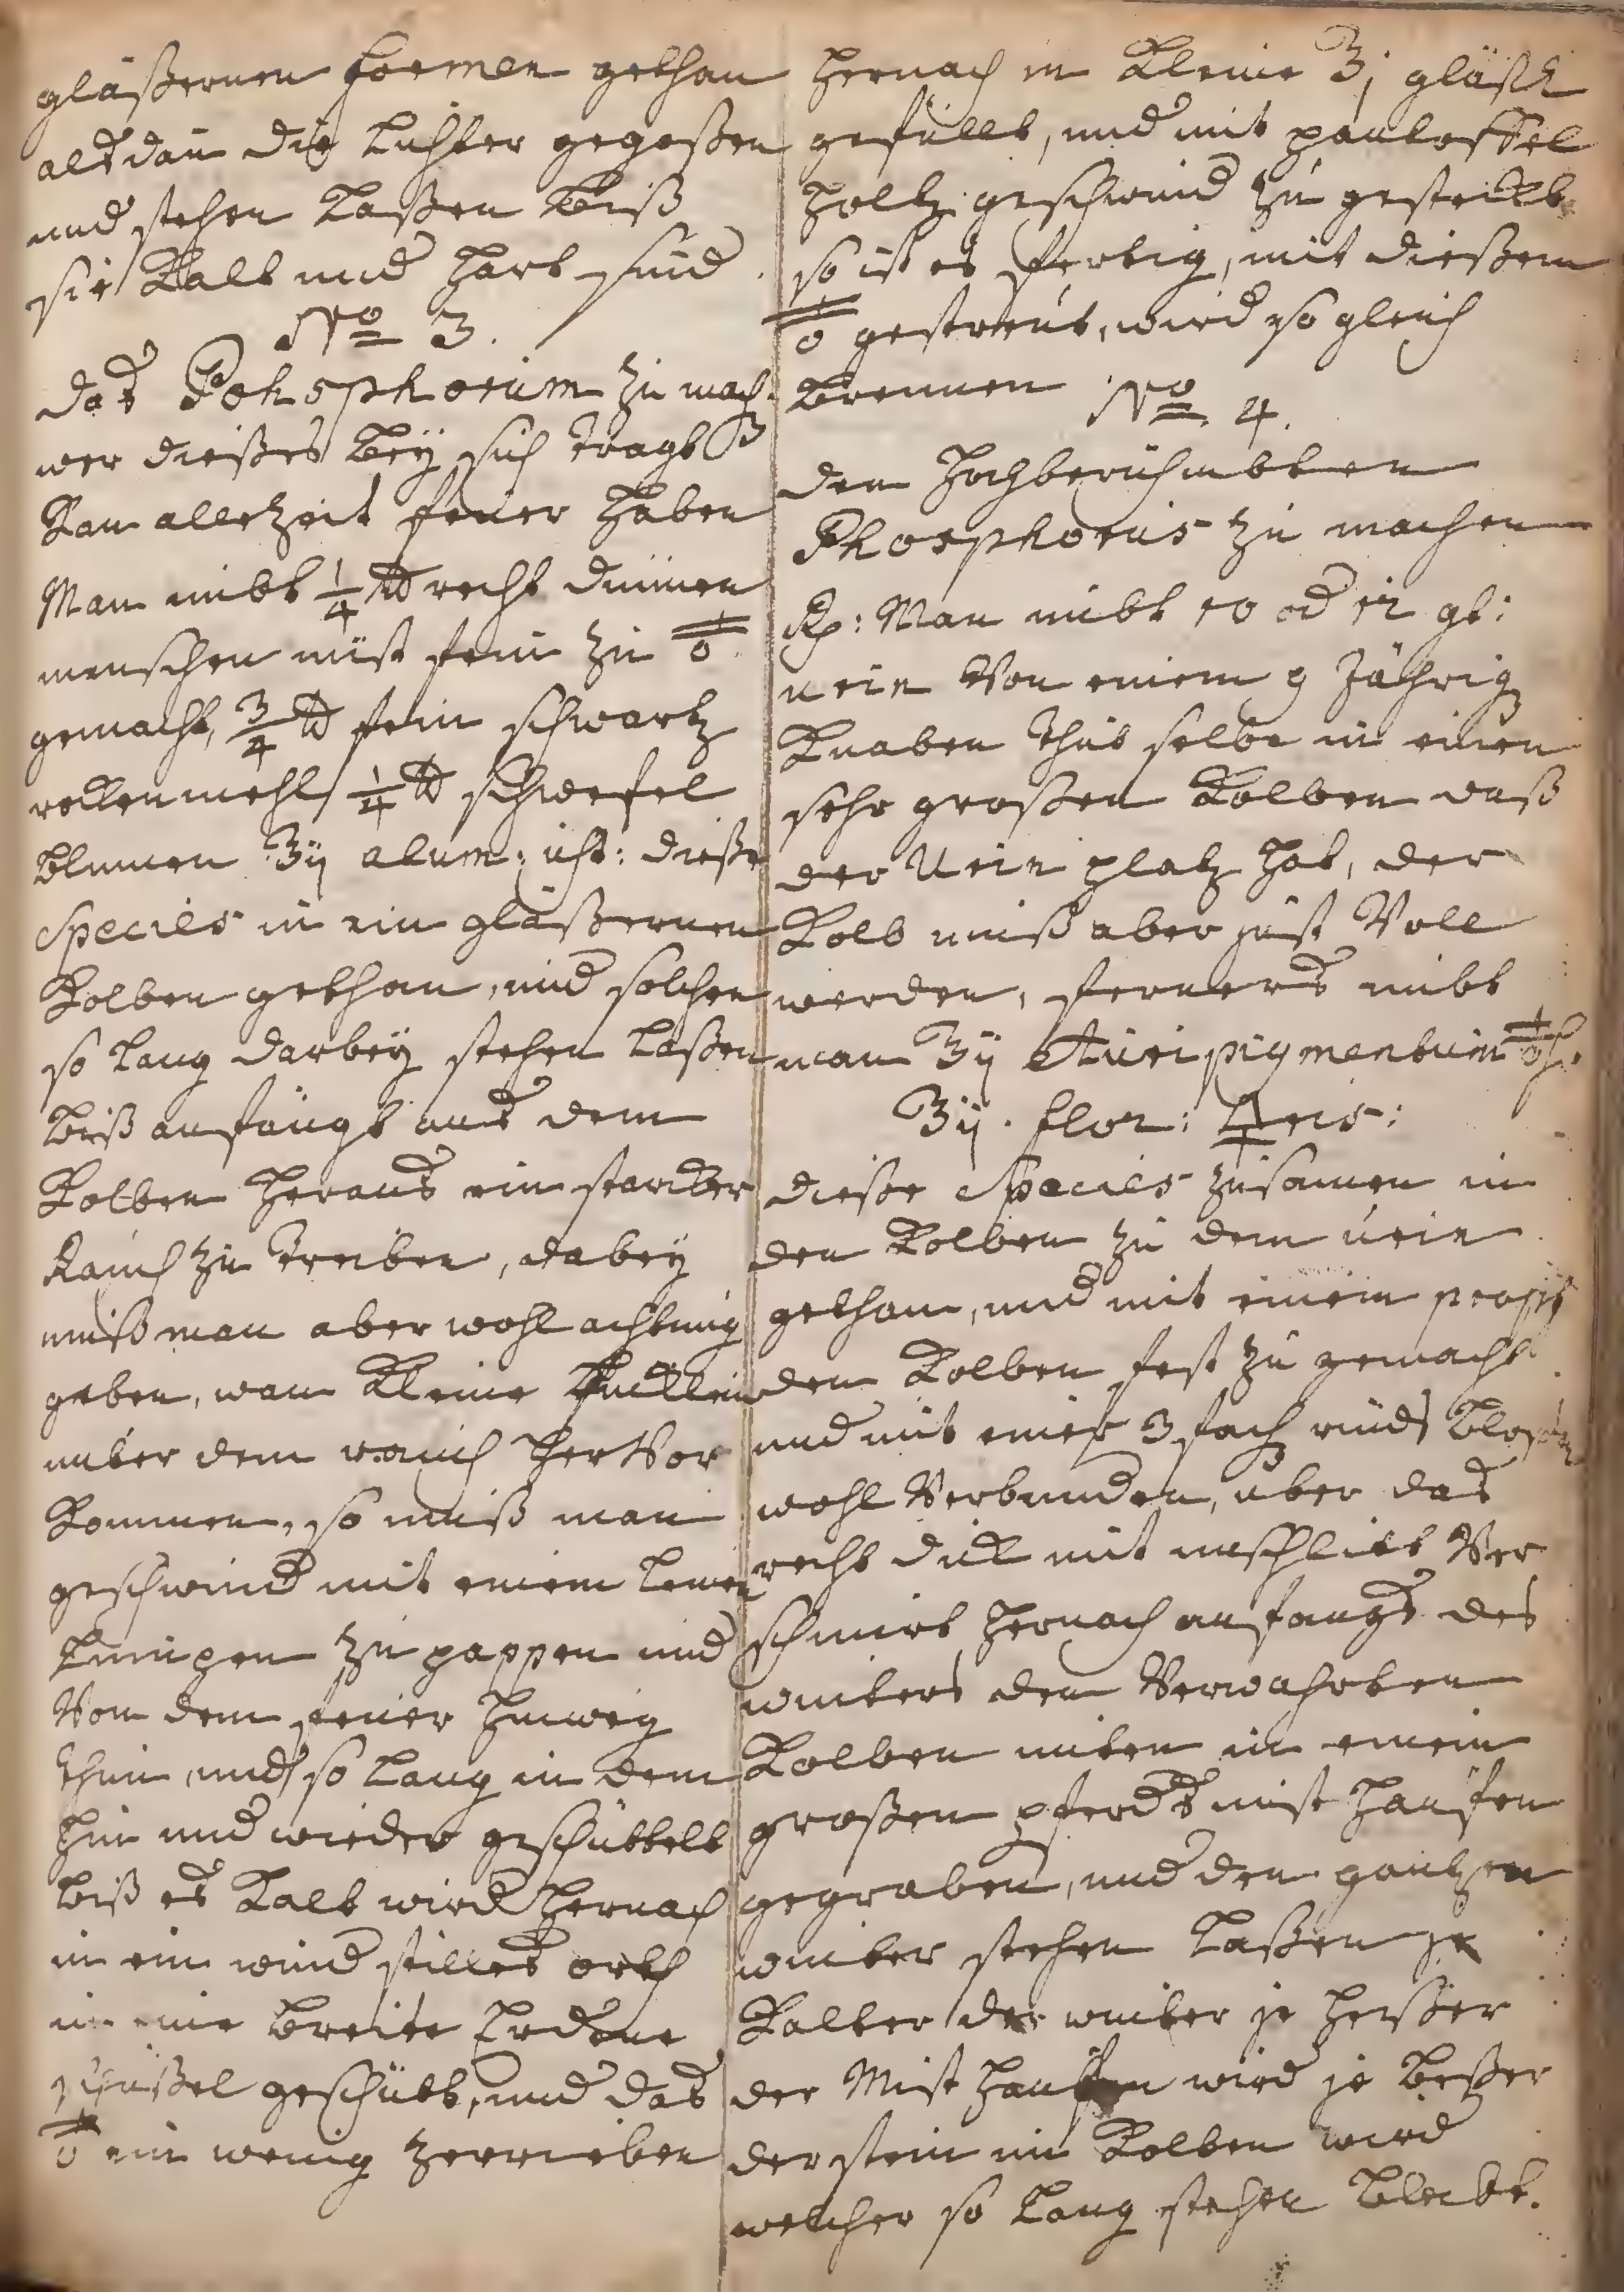 gläßernen formen gethan
alsdan die Lichter gegoßen
und stehen Laßen Biß
sie Kalt und hart sind
No 3.
das Pohsphorum zu mach
wer dießes Bey sich tragt
Kan allezeit feuer haben
Man nibt 1/4 ℔ recht dürren
menschen mist fein zu
gemacht, 3/4 ℔ fein schwartz
rockenmehl, 1/4 ℔ schwefel
Blumen ʒij alum: ust: dieße
Species in ein gläßernen
Kolben gethan, und solchen
so Lang darbey stehen Laßen
Biß anfängt aus dem
Kolben heraus ein starcker
Rauch zu treiben, dabey
muß man aber wohl achtung
geben, wan Kleine
unter dem rauch her Vor
Kommen, so muß man
geschwind mit einem
Lumpen zu pappen und
Von dem feuer hinweg
thun, und so Lang in dem
hin und wieder geschüttelt
Biß es Kalt wird hernach
in ein wind stilles orth
in eine Breite Erdene
schüßel geschütt, und das
ein wenig zerrieben
hernach in Kleine ʒj gläßl
gefüllt, und mit pantoffel
holtz geschwind zu gesteckt
so ist es fertig, mit dießem
gestreut, wird so gleich
Brennen
No. 4.
den hochberühmbten
Phosphorus zu machen
Rp: Man nibt 10 od 12 gt:
urin Von einem 9 Jährig
Knaben thut selbe in einen
sehr großen Kolben daß
der Urin platz hat, der
Kolb muß aber just Voll
werden, ferners nibt
man ʒij Auripigmentum
ʒij. flor: 🜍ris:
dieße Species zusamen in
den Kolben zu dem urin
gethan, und mit einem
den Kolben fest zu gemacht
und mit einer 3 fach rinds
wohl Verbunden, über das
recht dick mit unschlitt Ver
schmirt hernach anfangs des
winters den Verwahrten
Kolben unten in einem
großen pferds mist hauffen
gegraben, und den gantzen
winter stehen Laßen je
Kalter der winter je heißer
der Mist hauffen wird je Beßer
der stein im Kolben wird
welcher so Lang stehen Bleibt.